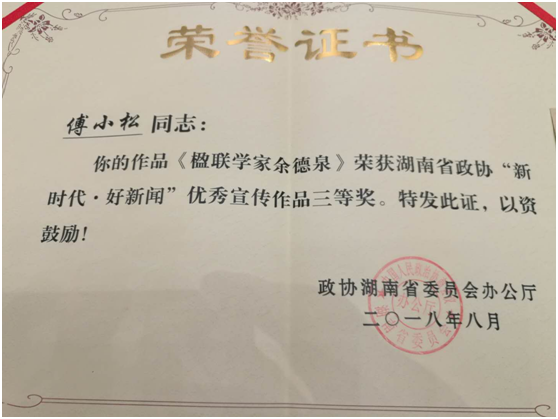 荣誉证书
傅小松 同志：
你的作品《楹联学家余德泉》荣获湖南省政协“新
时代·好新闻”优秀宣传作品三等奖。特发此证，以资
鼓励！
政协湖南省委员会办公厅
二〇一八年八月
办公厅